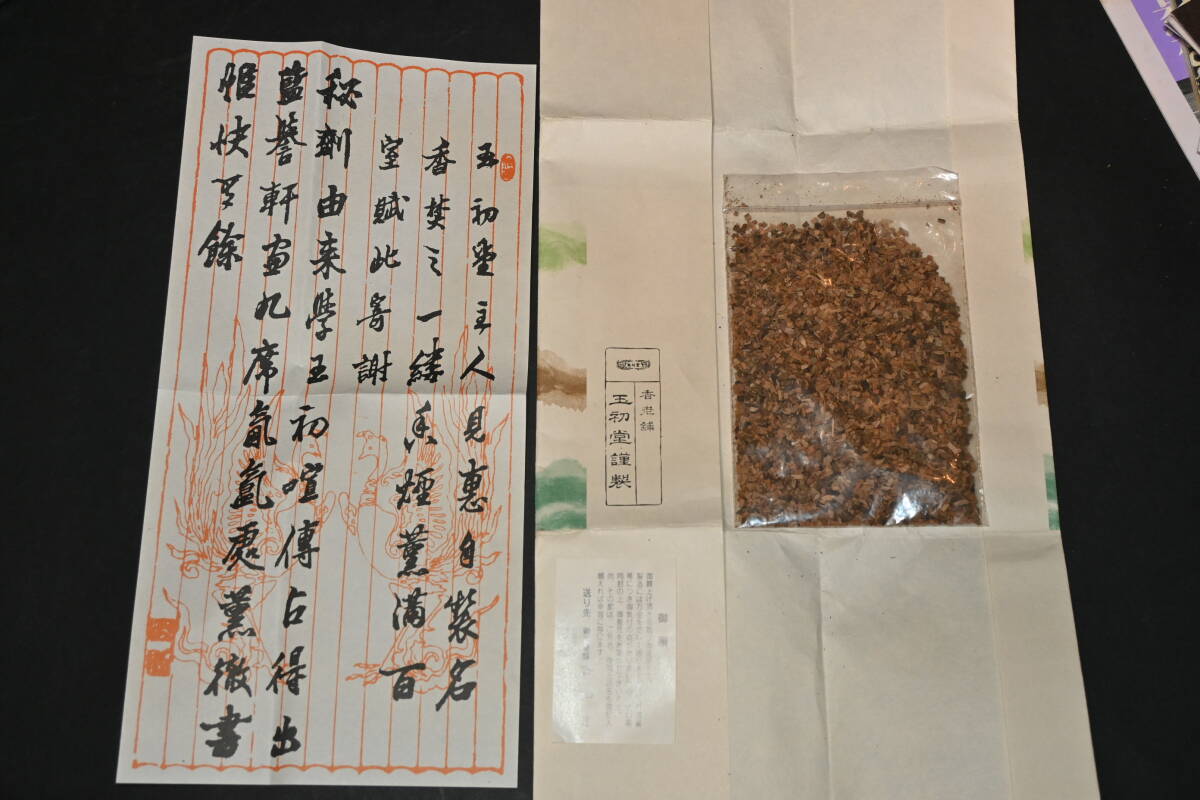 玉初堂主人見惠自製名
香焚之一縷香煙薰滿百
室賦此寄謝
秘劑由来學玉初喧傳占得出
藍譽軒窗几席氤氳處薰徹書
帷快有餘
香老舗
玉初堂謹製
御願
送り先